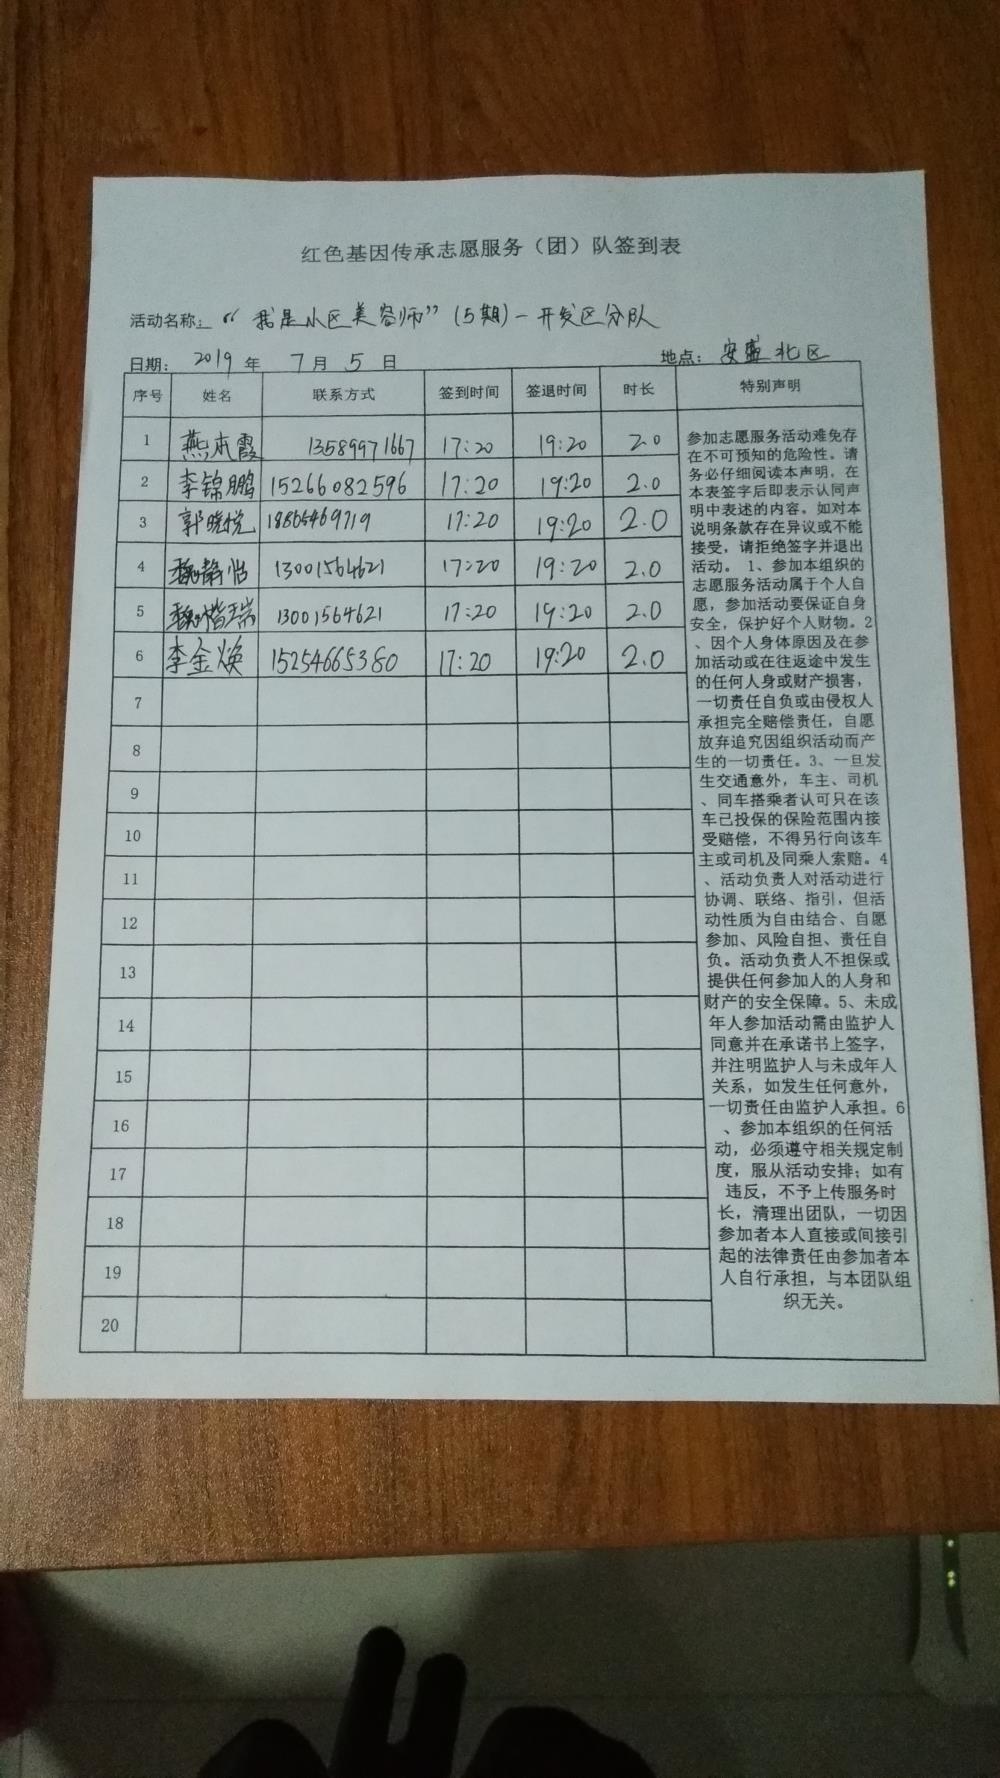 红色基因传承志愿服务（团）队签到表
活动名称：“我是小区美容师”（5期）－开发区分队
日期： 2019 年 7 月 5 日 地点： 安盛北区
序号 姓名 联系方式 签到时间 签退时间 时长 特别声明
1 燕本霞 13589971667 17:20 19:20 2.0
2 李锦鹏 15266082596 17:20 19:20 2.0
3 郭晓悦 18865469719 17:20 19:20 2.0
4 魏静怡 13001564621 17:20 19:20 2.0
5 魏楷瑞 13001564621 17:20 19:20 2.0
6 李金焕 15254665380 17:20 19:20 2.0
7
8
9
10
11
12
13
14
15
16
17
18
19
20
参加志愿服务活动难免存
在不可预知的危险性。请
务必仔细阅读本声明，在
本表签字后即表示认同声
明中表述的内容。如对本
说明条款存在异议或不能
接受，请拒绝签字并退出
活动。 1、参加本组织的
志愿服务活动属于个人自
愿，参加活动要保证自身
安全，保护好个人财物。2
、因个人身体原因及在参
加活动或在往返途中发生
的任何人身或财产损害，
一切责任自负或由侵权人
承担完全赔偿责任，自愿
放弃追究因组织活动而产
生的一切责任。3、一旦发
生交通意外，车主、司机
、同车搭乘者认可只在该
车已投保的保险范围内接
受赔偿，不得另行向该车
主或司机及同乘人索赔。4
、活动负责人对活动进行
协调、联络、指引，但活
动性质为自由结合、自愿
参加、风险自担、责任自
负。活动负责人不担保或
提供任何参加人的人身和
财产的安全保障。5、未成
年人参加活动需由监护人
同意并在承诺书上签字，
并注明监护人与未成年人
关系，如发生任何意外，
一切责任由监护人承担。6
、参加本组织的任何活
动，必须遵守相关规定制
度，服从活动安排；如有
违反，不予上传服务时
长，清理出团队，一切因
参加者本人直接或间接引
起的法律责任由参加者本
人自行承担，与本团队组
织无关。